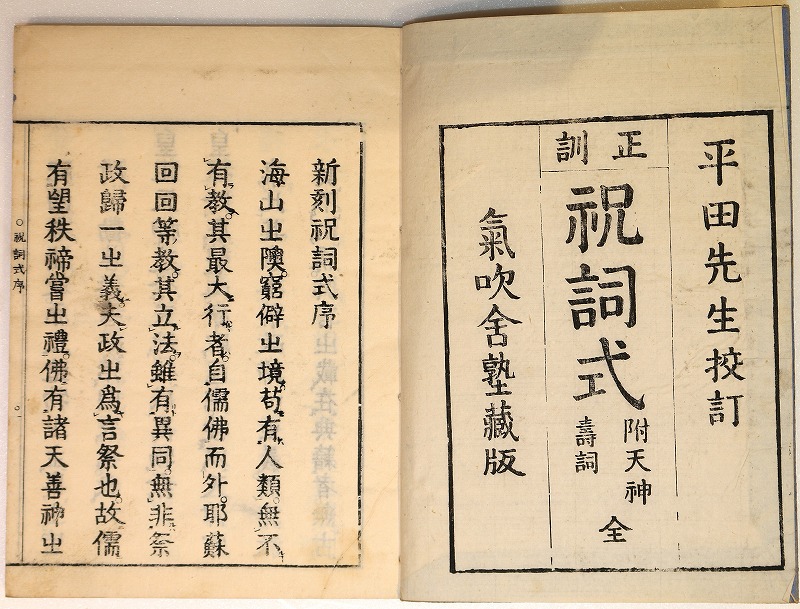 平田先生挍訂
正訓
祝詞式
附天神
壽詞
全
氣吹舍塾藏版
新刻祝詞式序
海山㞢隩。窮僻㞢境。苟有人類。無不
有教。其最大行者。自儒佛而外。耶蘇
回回等教。其立法雖有異同。無非祭
政歸一㞢義。夫政㞢爲言祭也。故儒
有望秩禘嘗㞢禮。佛有諸天善神㞢
○祝詞式序